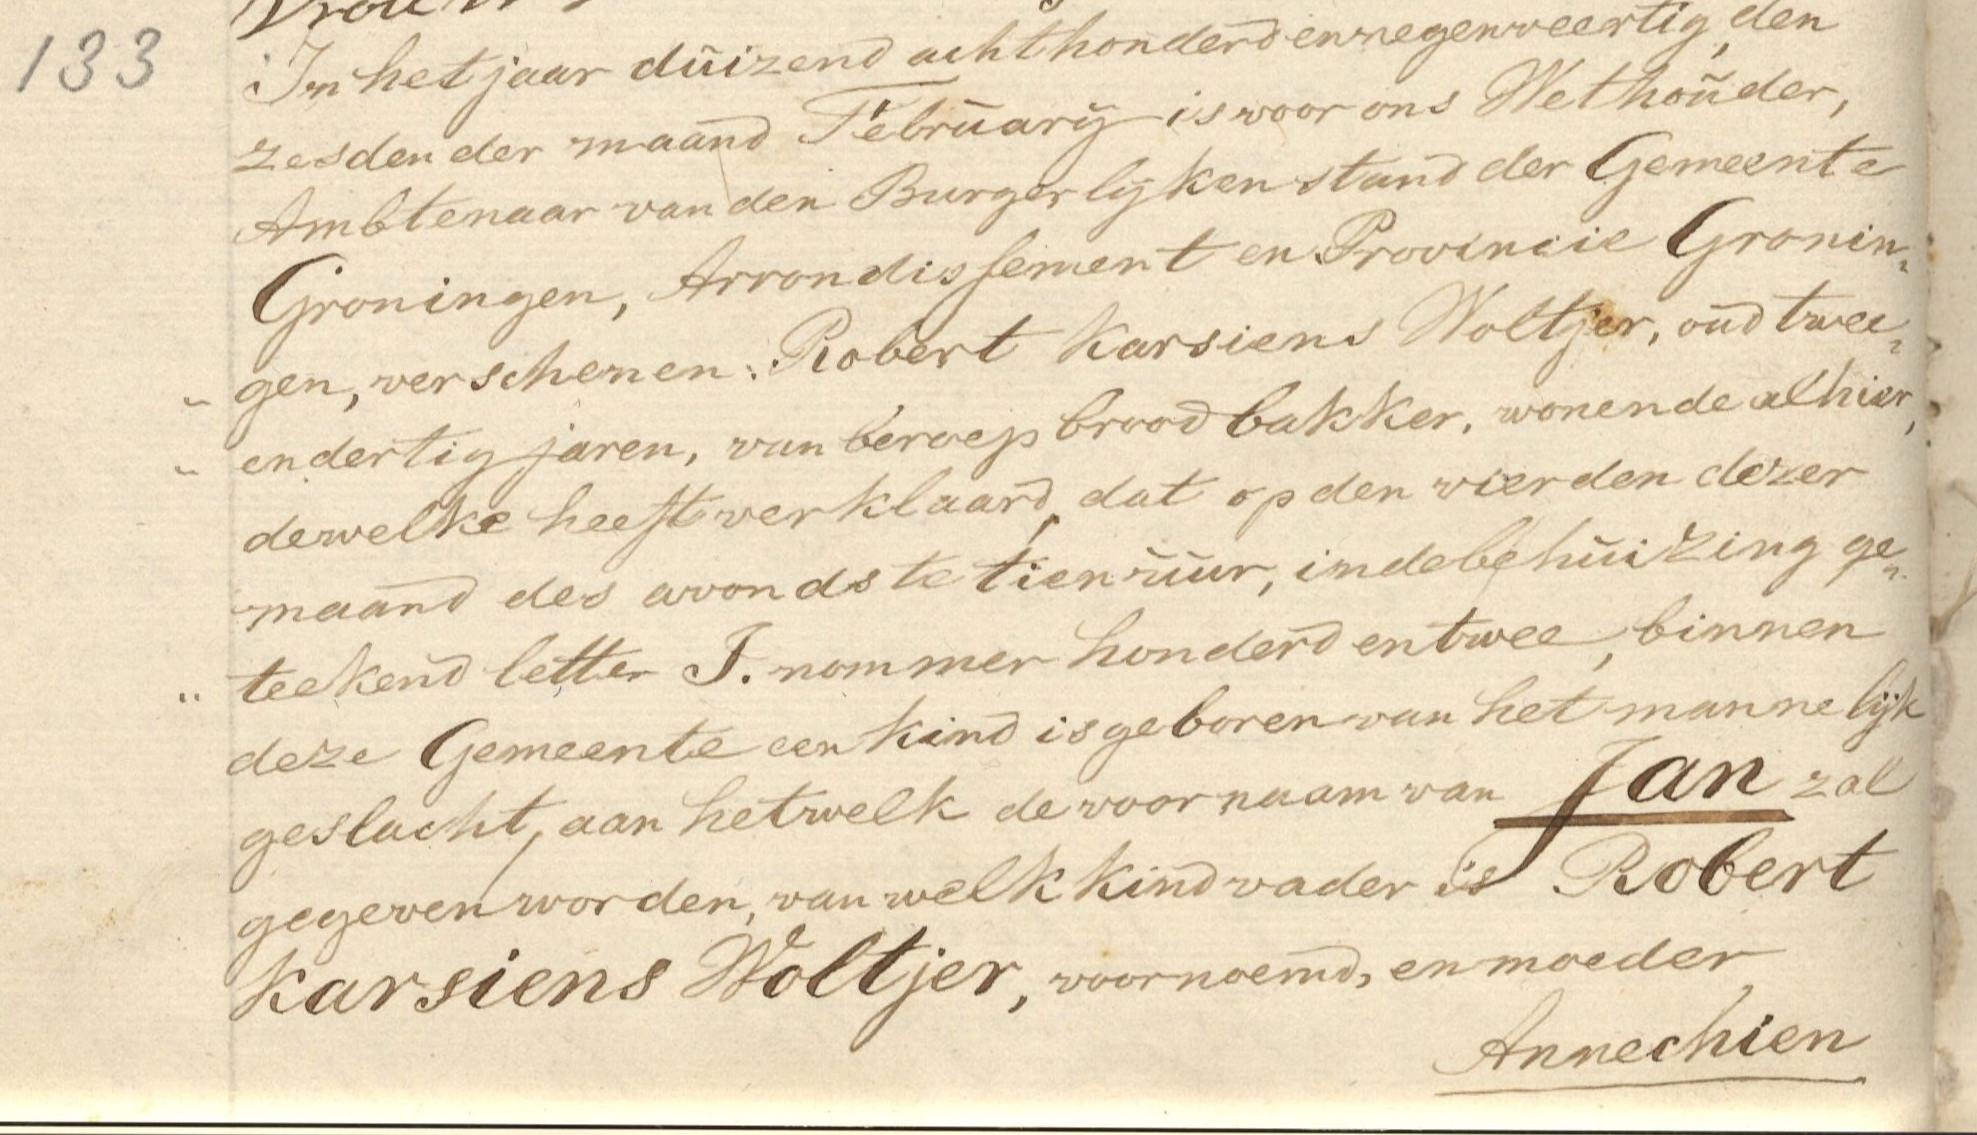 133
In het jaar duizend achthonderd en negenveertig, den
zesden der maand February is voor ons Wethouder,
Ambtenaar van den Burgerlijken stand der Gemeente
Groningen, Arrondissement en Provincie Gronin„
gen, verschenen: Robert Karsiens Woltjer, oud twee„
endertig jaren, van beroep broodbakker, wonende alhier,
dewelke heeft verklaard, dat op den vierden dezer
maand des avonds te tien uur, in de behuizing ge„
teekend letter I. nommer honderd en twee, binnen
deze Gemeente een kind is geboren van het mannelijk
geslacht, aan hetwelk de voornaam van Jan zal
gegeven worden, van welk kind vader is Robert
Karsiens Woltjer, voornoemd, en moeder
Annechien